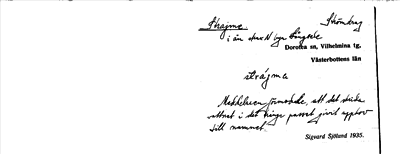 Strajme Strömdrag
i ån strax N byn Långsele
Dorotea sn, Vilhelmina tg,
Västerbottens län
stràjma
Meddelaren förmodade, att det strida
vattnet i det kunge passet givit upphov
till namnet.
Sigvard Sjölund 1935.